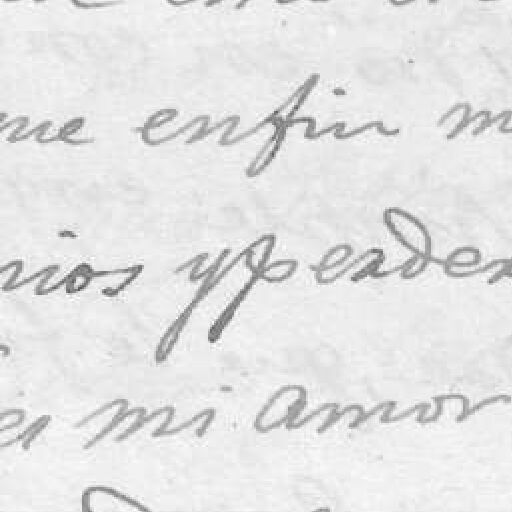 me enfin m
nios y perder
mi amor